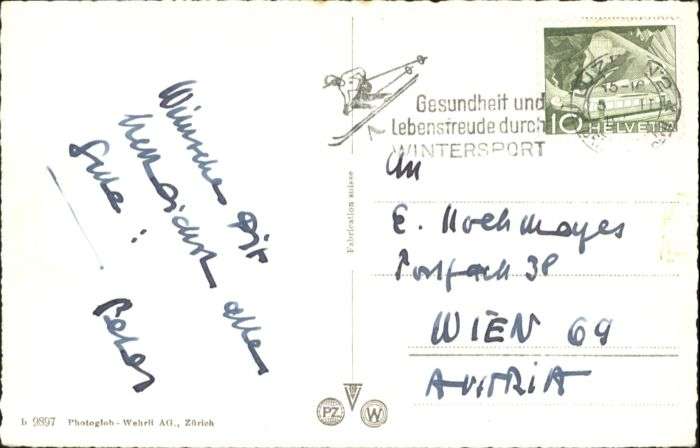 Wünsche Dir
herzlichst alles
Gute!
Peter
Gesundheit und
Lebensfreude durch
WINTERSPORT
10 HELVETIA
Fabrication suisse
An
E. Hochmayer
Postfach 38
WIEN 69
AUSTRIA
PZ
W
b 9897 Photoglob-Wehrli AG., Zürich